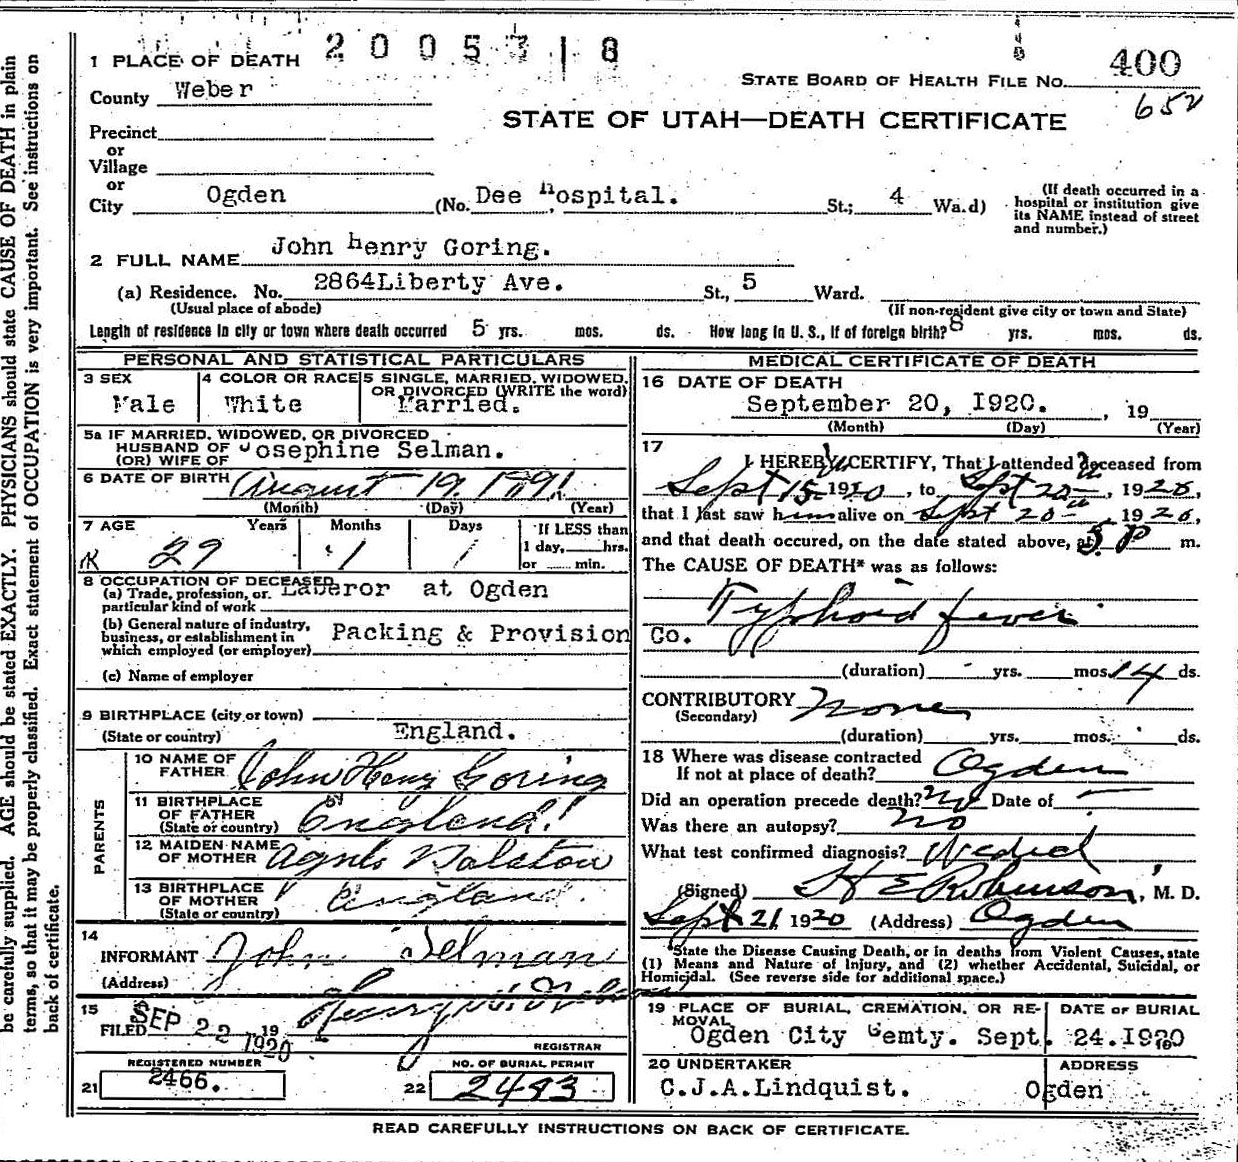 2005318
1 PLACE OF DEATH
STATE BOARD OF HEALTH FILE NO. 400
652
County Weber
STATE OF UTAH—DEATH CERTIFICATE
Precinct
or
Village
or
City Ogden (No. Dee Hospital. St.; 4 Wa.d)
(If death occurred in a hospital or institution give its NAME instead of street and number.)
2 FULL NAME John Henry Goring.
(a) Residence. No. 2864 Liberty Ave. St., 5 Ward.
(Usual place of abode) (If non-resident give city or town and State)
Length of residence in city or town where death occurred 5 yrs. mos. ds. How long in U. S., if of foreign birth? 8 yrs. mos. ds.
PERSONAL AND STATISTICAL PARTICULARS
3 SEX Male
4 COLOR OR RACE White
5 SINGLE, MARRIED, WIDOWED, OR DIVORCED (WRITE the word) Married.
5a IF MARRIED, WIDOWED, OR DIVORCED
HUSBAND OF Josephine Selman.
(OR) WIFE OF
6 DATE OF BIRTH August 19. 1891
(Month) (Day) (Year)
7 AGE Years Months Days If LESS than
29 1 1 1 day, hrs.
or min.
8 OCCUPATION OF DECEASED
(a) Trade, profession, or particular kind of work Laberor at Ogden
(b) General nature of industry, business, or establishment in which employed (or employer) Packing & Provision Co.
(c) Name of employer
9 BIRTHPLACE (city or town)
(State or country) England.
PARENTS
10 NAME OF FATHER John Henry Goring
11 BIRTHPLACE OF FATHER (State or country) England
12 MAIDEN NAME OF MOTHER Agnes
13 BIRTHPLACE OF MOTHER (State or country) England
14
INFORMANT John Selman
(Address)
15
FILED SEP 22 1920 19
REGISTRAR
REGISTERED NUMBER
21 2466.
NO. OF BURIAL PERMIT
22 2493
MEDICAL CERTIFICATE OF DEATH
16 DATE OF DEATH
September 20, I920. , 19
(Month) (Day) (Year)
17
I HEREBY CERTIFY, That I attended deceased from
Sept 15 1920, to Sept 20th, 1920,
that I last saw him alive on Sept 20th 1920,
and that death occured, on the date stated above, at 5 P m.
The CAUSE OF DEATH* was as follows:
Typhoid fever
(duration) yrs. mos. 14 ds.
CONTRIBUTORY None
(Secondary)
(duration) yrs. mos. ds.
18 Where was disease contracted
If not at place of death? Ogden
Did an operation precede death? No Date of
Was there an autopsy? No
What test confirmed diagnosis?
(Signed) H E Robinson, M. D.
Sept 21 1920 (Address) Ogden
*State the Disease Causing Death, or in deaths from Violent Causes, state
(1) Means and Nature of Injury, and (2) whether Accidental, Suicidal, or
Homicidal. (See reverse side for additional space.)
19 PLACE OF BURIAL, CREMATION, OR REMOVAL DATE OF BURIAL
Ogden City Cemty. Sept. 24. I920
20 UNDERTAKER ADDRESS
C.J.A.Lindquist. Ogden
READ CAREFULLY INSTRUCTIONS ON BACK OF CERTIFICATE.
be carefully supplied. AGE should be stated EXACTLY. PHYSICIANS should state CAUSE OF DEATH in plain
terms, so that it may be properly classified. Exact statement of OCCUPATION is very important. See instructions on
back of certificate.